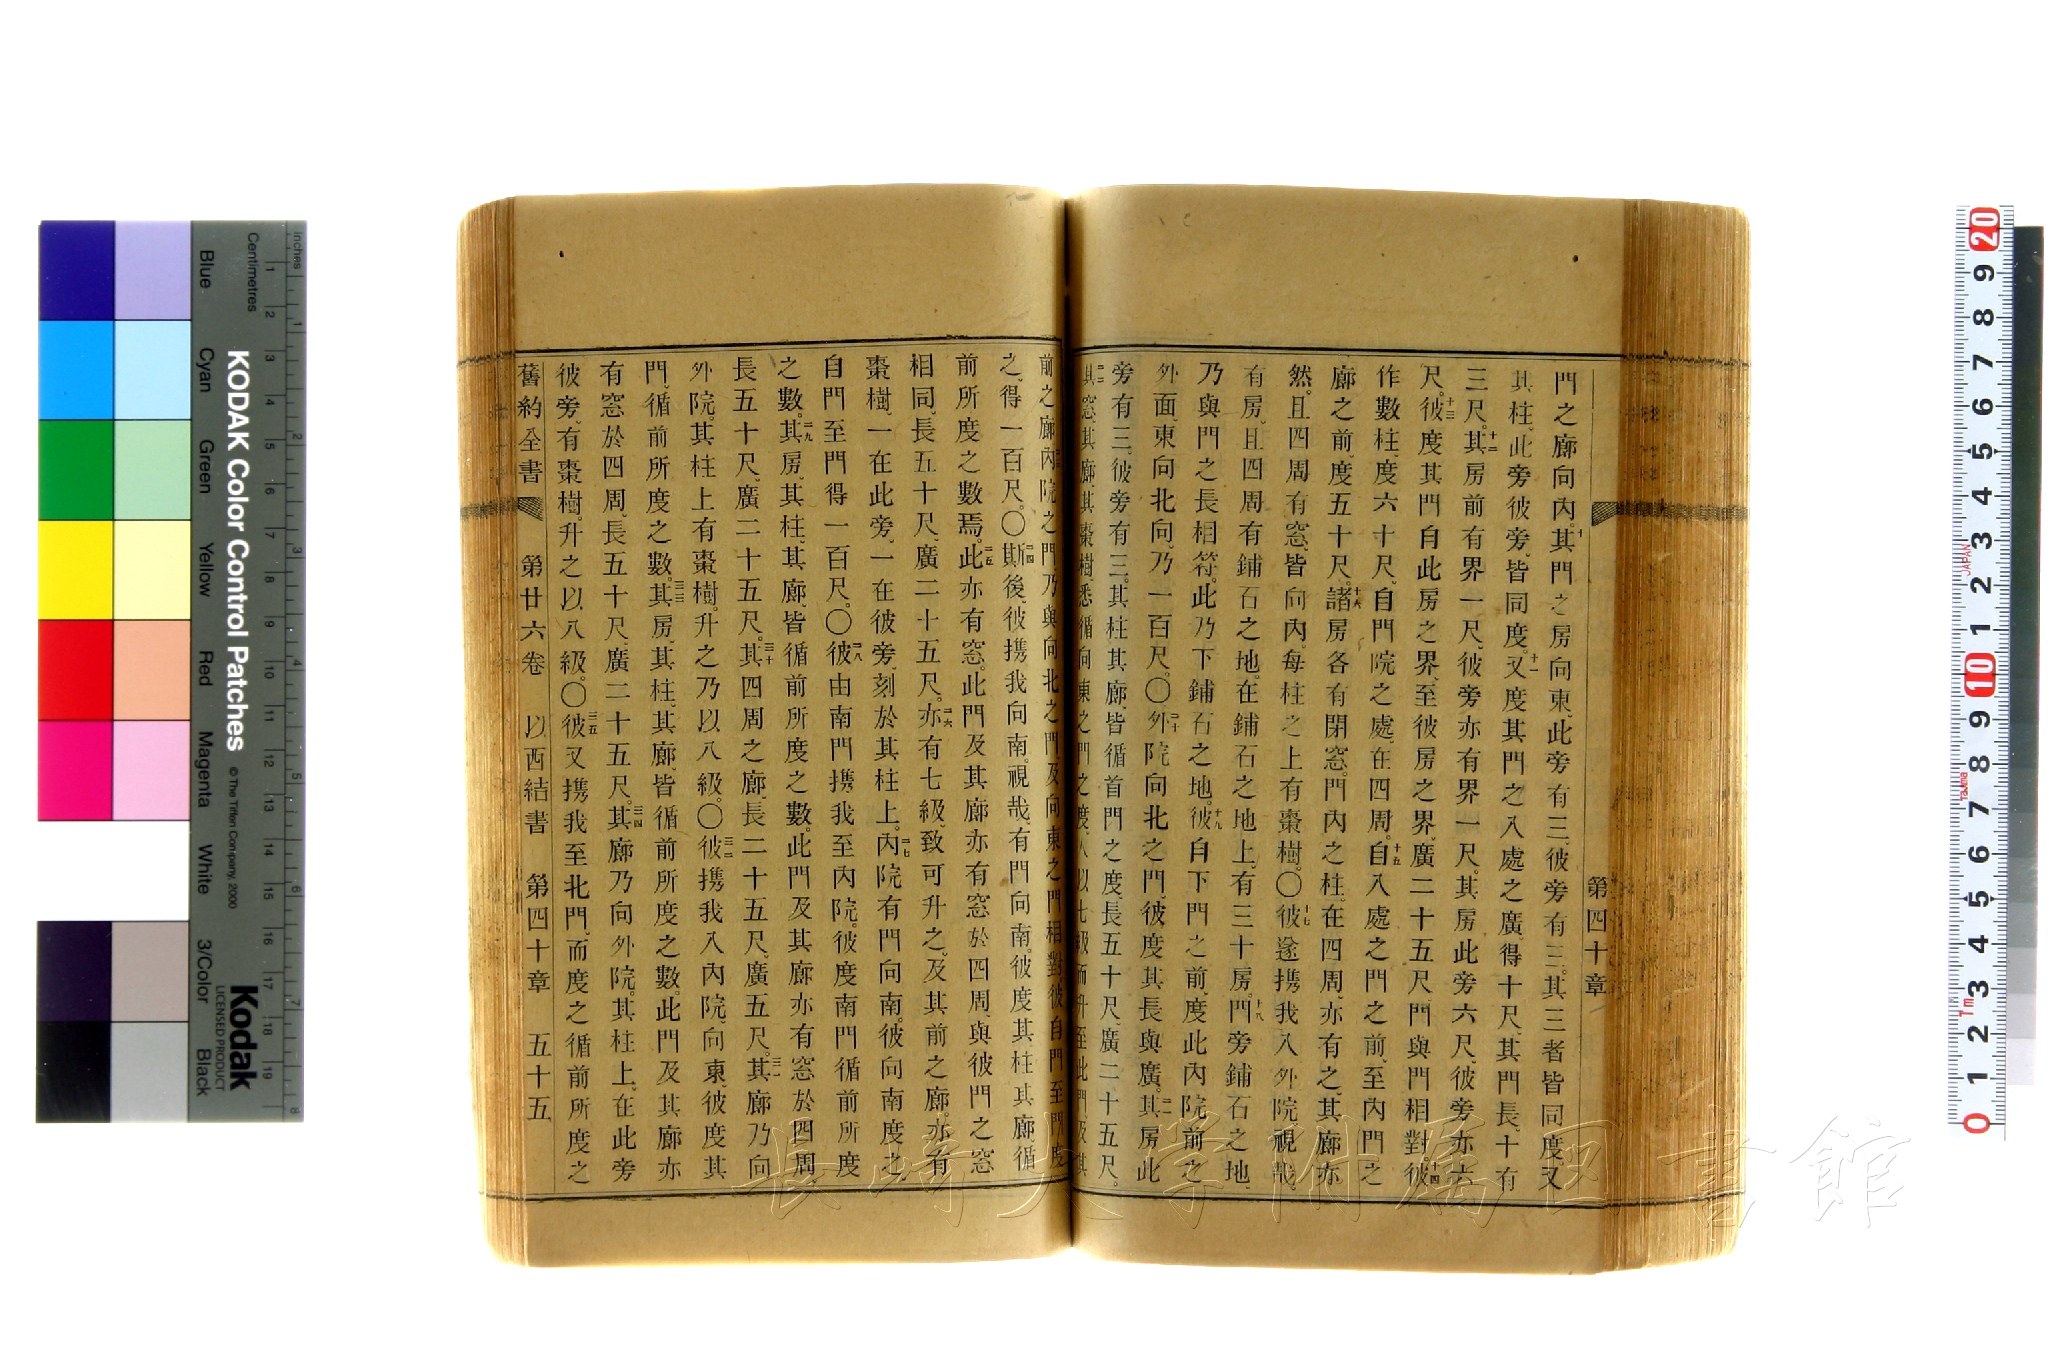 第四十章
門之廊向內。十其門之房向東、此旁有三、彼旁有三、其三者皆同度、又
其柱、此旁彼旁、皆同度。十一又度其門之入處之廣得十尺、其門長、十有
三尺。十二其房前有界一尺、彼旁亦有界一尺、其房此旁六尺、彼旁亦六
尺。十三彼度其門自此房之界、至彼房之界、廣二十五尺、門與門相對。十四彼
作數柱、度六十尺、自門院之處、在四周。十五自入處之門之前、至內門之
廊之前、度五十尺。十六諸房各有閉窓、門內之柱、在四周、亦有之、其廊亦
然、且四周有窓、皆向內、每柱之上有棗樹。〇十七彼遂攜我入外院、視哉、
有房、且四周有鋪石之地、在鋪石之地上、有三十房。十八門旁鋪石之地、
乃與門之長相符、此乃下鋪石之地。十九彼自下門之前、度此內院前之
外面、東向北向、乃一百尺。〇二十外院向北之門、彼度其長與廣。二一其房此
旁有三、彼旁有三、其柱其廊、皆循首門之度、長五十尺、廣二十五尺。
二二其窓、其廊、其棗樹、悉循向東之門之度、人以七級而升至此門、及其
前之廊。二三內院之門、乃與向北之門、及向東之門相對、彼自門至門度
之、得一百尺。〇二四斯後、彼攜我向南、視哉、有門向南、彼度其柱其廊、循
前所度之數焉。二五此亦有窓、此門及其廊、亦有窓於四周、與彼門之窓
相同、長五十尺、廣二十五尺。二六亦有七級、致可升之、及其前之廊、亦有
棗樹、一在此旁、一在彼旁、刻於其柱上。二七內院有門向南、彼向南度之、
自門至門得一百尺。〇二八彼由南門攜我至內院、彼度南門、循前所度
之數。二九其房、其柱、其廊、皆循前所度之數、此門及其廊、亦有窓於四周、
長五十尺、廣二十五尺。三十其四周之廊、長二十五尺、廣五尺。三一其廊乃向
外院、其柱上有棗樹、升之乃以八級。〇三二彼攜我入內院、向東、彼度其
門、循前所度之數。三三其房、其柱、其廊、皆循前所度之數、此門及其廊、亦
有窓於四周、長五十尺、廣二十五尺。三四其廊乃向外院、其柱上、在此旁
彼旁、有棗樹、升之以八級。〇三五彼又攜我至北門、而度之、循前所度之
舊約全書 第廿六卷 以西結書 第四十章 五十五
長崎大学附属図書館
KODAK Color Control Patches
© The Tiffen Company, 2000
Kodak
LICENSED PRODUCT
Inches
Centimetres
Blue
Cyan
Green
Yellow
Red
Magenta
White
3/Color
Black
JAPAN
Tajima